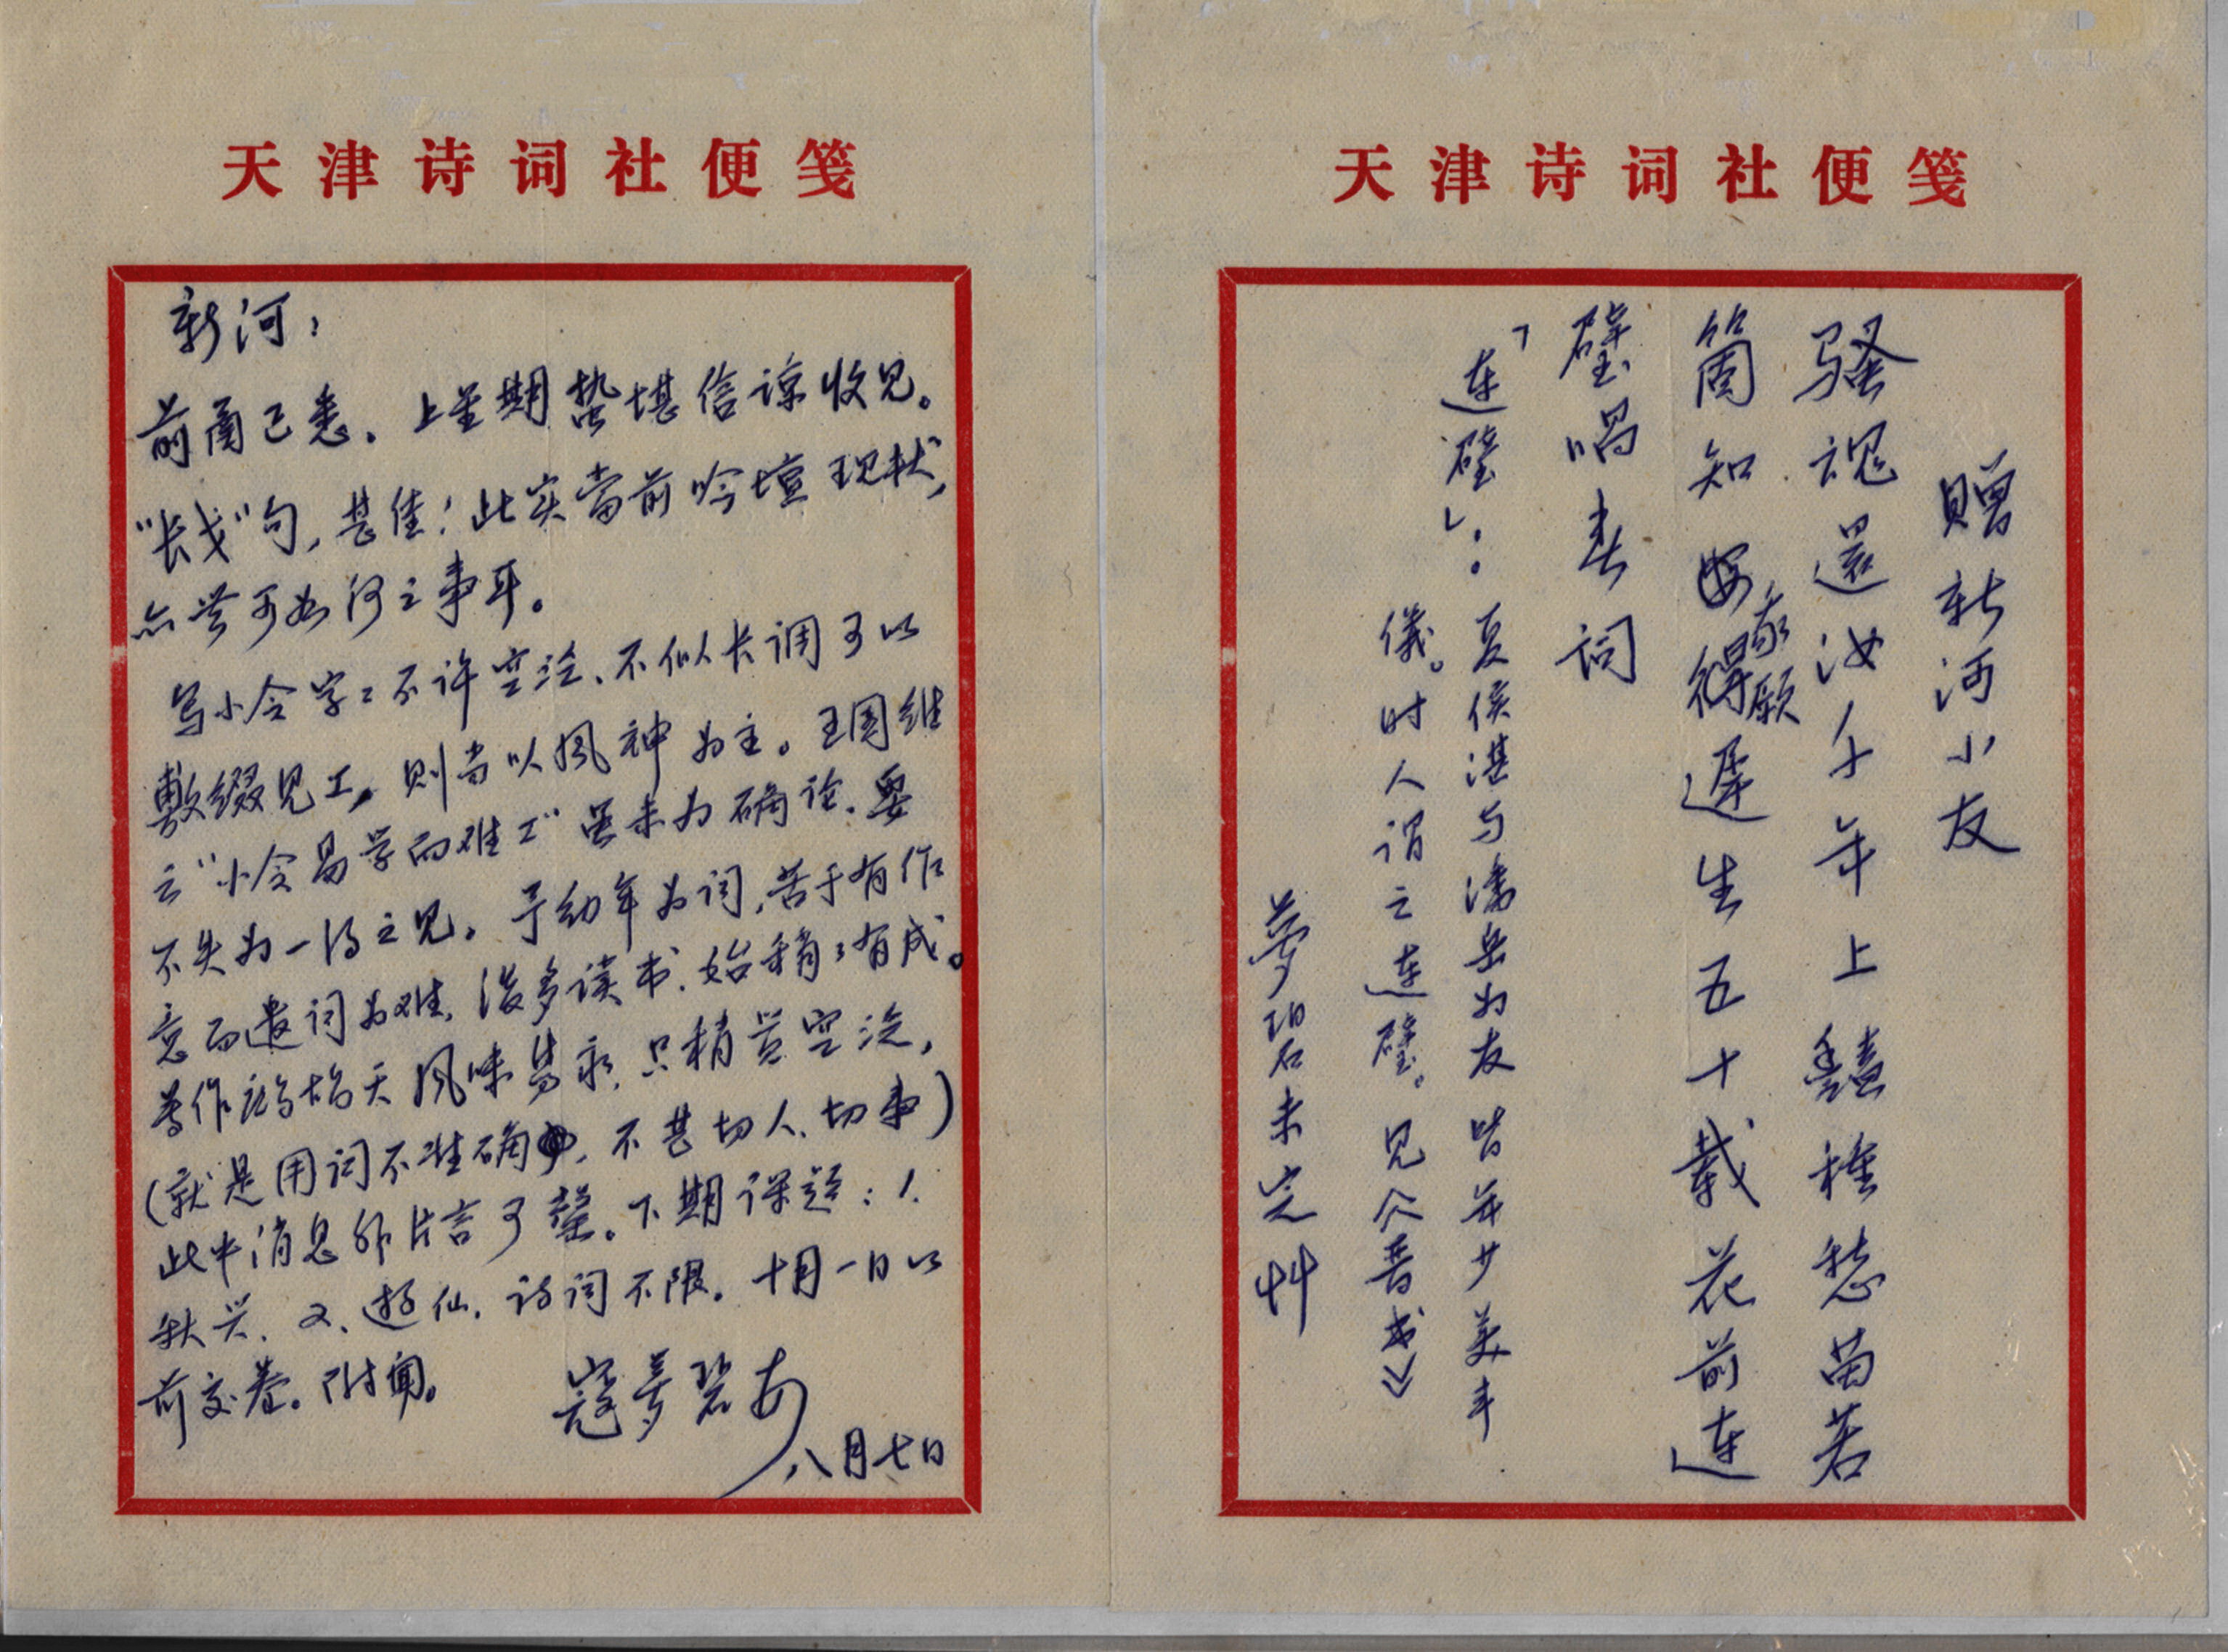 天津诗词社便笺
新河：
前函已悉。上星期蛰堪信谅收见。
“长戈”句，甚佳！此实当前吟坛现状，
亦无可如何之事耳。
写小令字〻不许空泛、不似长调可以
敷缀见工，则当以风神为主。王国维
云“小令易学而难工”虽未为确论，要
不失为一得之见。予幼年为词，苦于有作
意而遣词为难，后多读书，始稍〻有成。
尊作鹧鸪天风味隽永，只稍嫌空泛，
（就是用词不准确，不甚切人、切事）
此中消息非片言可罄。下期课题：1.
秋兴、2、游仙，诗词不限。十月一日以
前交卷。附闻。
寇梦碧
八月七日
天津诗词社便笺
赠新河小友
骚魂还汝少年上蠢种愁苗若
箇知
家願
遲生五十载花前连
璧唱春词
「连璧」：夏侯湛与潘岳为友皆年少美丰
儀。时人谓之连璧。见《晋书》
梦碧未定艸